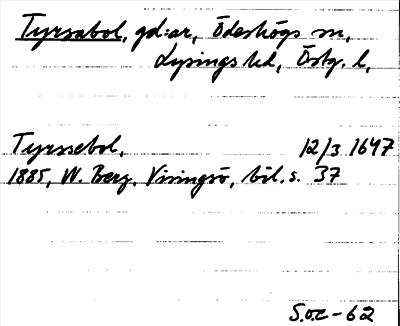 Tyrsabol, gd:ar, Ödeshögs sn,
Lysings hd, Östg. l,
Tyrssebol, 12/3 1647
1885, W. Berg, Visingsö, bil. s. 37
S.o.c-62